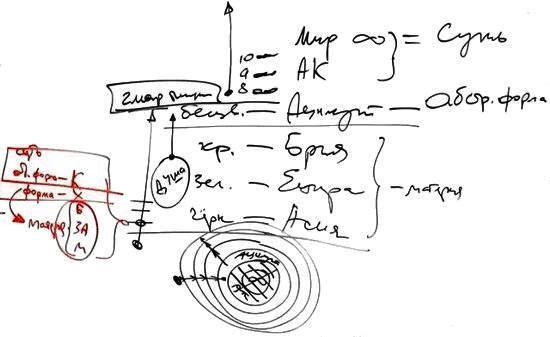 10 — Мир ∞ } = Суть
9 — АК
8 —
гмар тикун
белый. — Ацилут — Абстр. форма
кр. — Брия
зел. — Ецира — материя
чёрн — Асия
Душа
суть
аб. форма — К
форма — Х
материя Б
ЗА
М